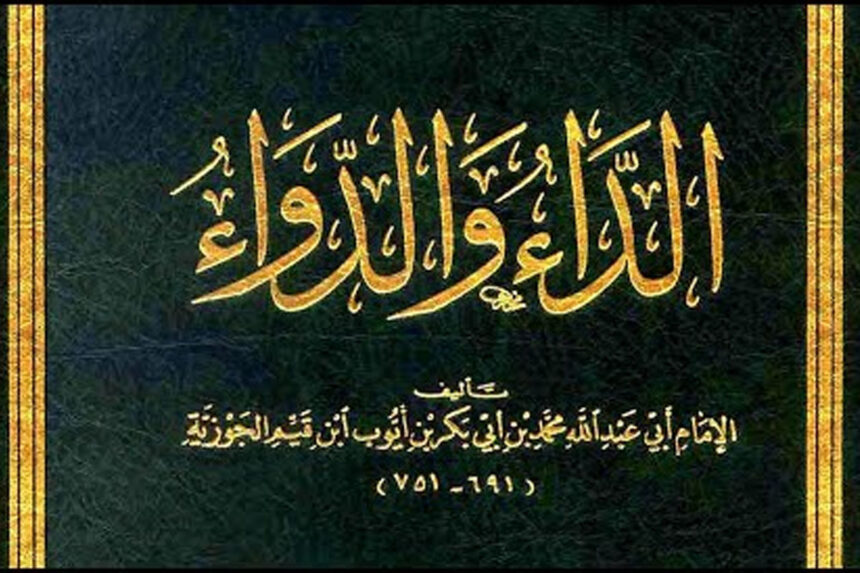 الدَّاءُ وَالدَّوَاءُ
تأليف
الإمام أبي عبد الله محمد بن أبي بكر بن أيوب ابن قيم الجوزية
(٦٩١ - ٧٥١)